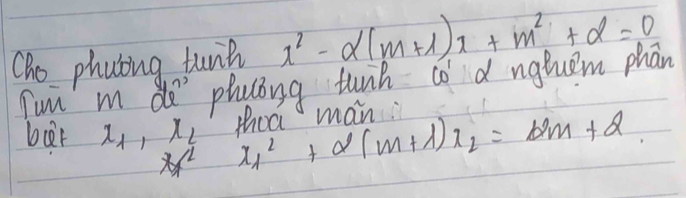 Cho phương trình x² - 2(m+1)x + m² + 2 = 0
Tìm m để phương trình có 2 nghiệm phân
biệt x₁, x₂ thoả mãn:
x₁² + 2(m+1)x₂ = 12m + 2.